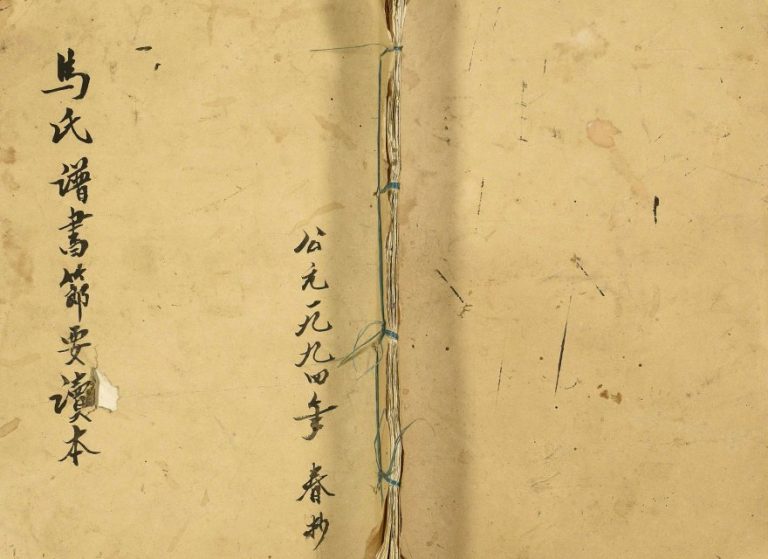 馬氏譜書節要瀆本
公元一九九四年 春抄